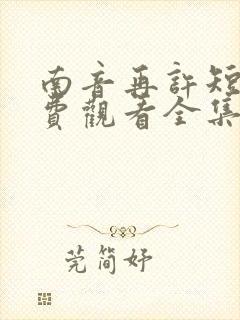 南音再許短
費觀看全集
莞簡妤